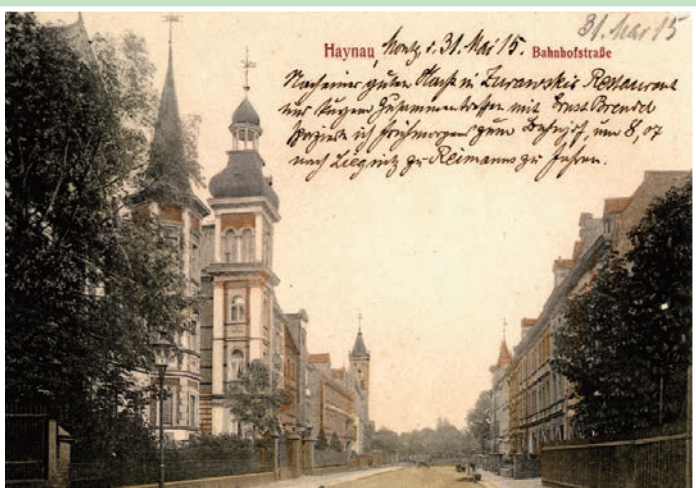 31. Mai 15
Haynau, Montg. d. 31. Mai 15. Bahnhofstraße
Nach einer guten Nacht in Zurawskis Restaurant
und kurzem Zusammentreffen mit Ernst Brendel
spaziere ich frühmorgens zum Bahnhof, um 8,07
nach Liegnitz zu Reimanns zu fahren.